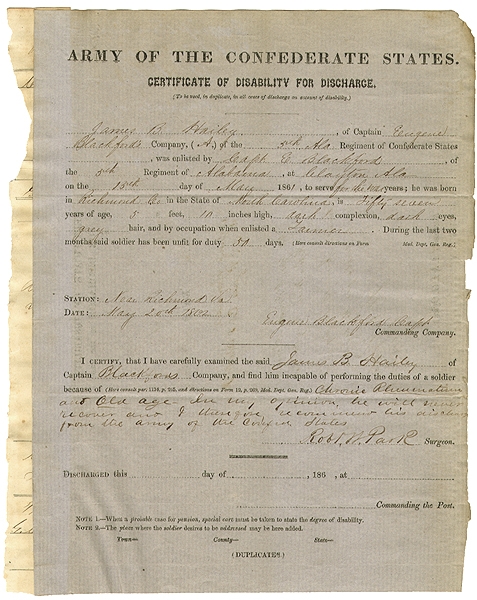 ARMY OF THE CONFEDERATE STATES.
CERTIFICATE OF DISABILITY FOR DISCHARGE.
(To be used, in duplicate, in all cases of discharge on account of disability.)
James B. Hailey, of Captain Eugene
Blackford's Company, (A,) of the 5th Ala Regiment of Confederate States
, was enlisted by Capt E. Blackford, of
the 5th Regiment of Alabama, at Clayton, Ala
on the 15th day of May 1861, to serve for the war years; he was born
in Richmond Co in the State of North Carolina, is Fifty seven
years of age, 5 feet, 10 inches high, dark complexion, dark eyes,
grey hair, and by occupation when enlisted a Farmer. During the last two
months said soldier has been unfit for duty 50 days. (Here consult directions on Form Med. Dept. Gen. Reg.)
STATION: Near Richmond Va.
DATE: May 20th 1862
Eugene Blackford Capt
Commanding Company.
I CERTIFY, that I have carefully examined the said James B. Hailey of
Captain Blackfords Company, and find him incapable of performing the duties of a soldier
because of (Here consult par. and directions on Form Med. Dept. Gen. Reg.) Chronic Rheumatism
and Old age. In my opinion he will never
recover and I therefore recommend his discharge
from the army of the Confed States
Robt. W. Park Surgeon.
DISCHARGED this day of , 186 , at
Commanding the Post.
NOTE 1.—When a probable case for pension, special care must be taken to state the degree of disability.
NOTE 2.—The place where the soldier desires to be addressed may be here added.
Town— County— State—
(DUPLICATES.)